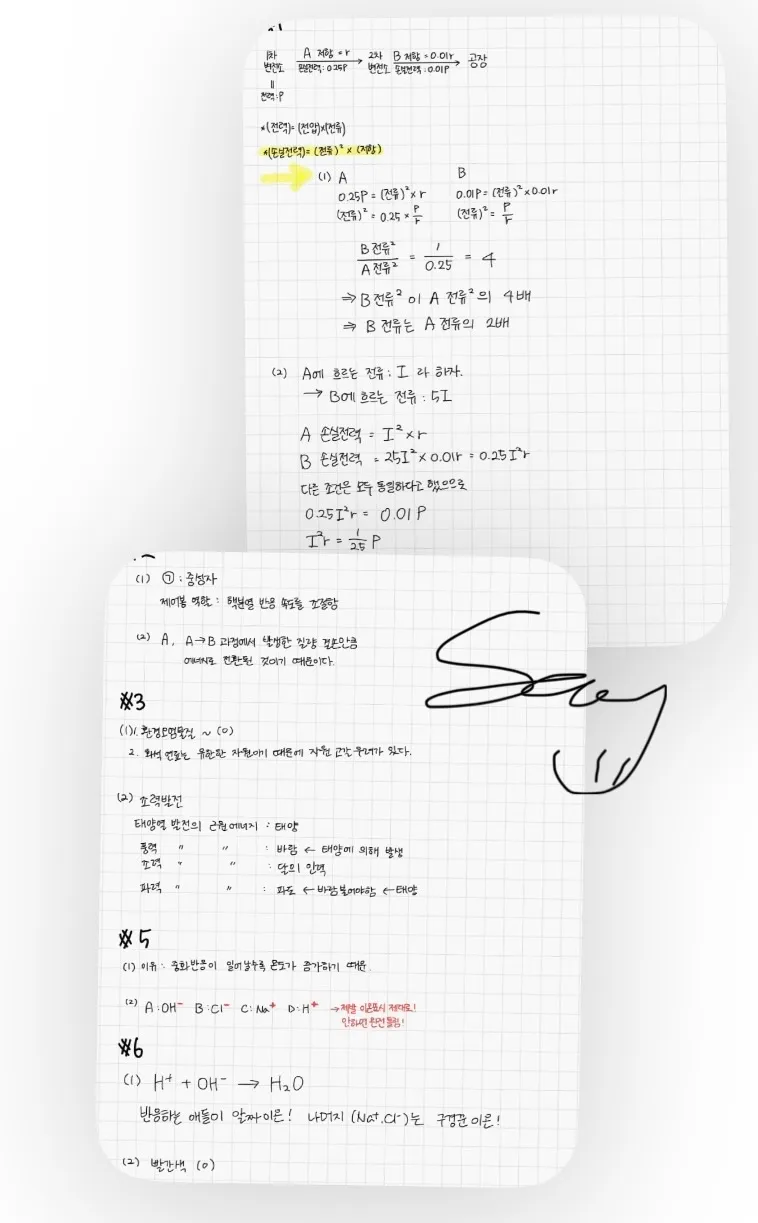 1차 A 저항 = r 2차 B 저항 = 0.01r 공장
변전소 손실전력 : 0.25P 변전소 손실전력 : 0.01P
=
전력 : P
*(전력) = (전압)×(전류)
*(손실전력) = (전류)² × (저항)
(1) A B
0.25P = (전류)² × r 0.01P = (전류)² × 0.01r
(전류)² = 0.25 × P/r (전류)² = P/r
B 전류²/A 전류² = 1/0.25 = 4
⇒ B 전류² 이 A 전류² 의 4배
⇒ B 전류는 A 전류의 2배
(2) A에 흐르는 전류 : I 라 하자.
→ B에 흐르는 전류 : 5I
A 손실전력 = I² × r
B 손실전력 = 25I² × 0.01r = 0.25I²r
다른 조건은 모두 동일하다고 했으므로
0.25I²r = 0.01P
I²r = 1/25 P
(1) ㉠ : 중성자
제어봉 역할 : 핵분열 반응 속도를 조절함
(2) A, A→B 과정에서 발생한 질량 결손만큼
에너지로 전환된 것이기 때문이다.
#3
(1) 1. 환경오염물질 ~ (0)
2. 화석 연료는 유한한 자원이기 때문에 자원 고갈 우려가 있다.
(2) 조력발전
태양열 발전의 근원에너지 : 태양
풍력 〃 〃 : 바람 ← 태양에 의해 발생
조력 〃 〃 : 달의 인력
파력 〃 〃 : 파도 ← 바람불어야함 ← 태양
#5
(1) 이유 : 중화반응이 일어날수록 온도가 증가하기 때문
(2) A : OH⁻ B : Cl⁻ C : Na⁺ D : H⁺ → 제발 이온표시 제대로!
안하면 완전 틀림!
#6
(1) H⁺ + OH⁻ → H₂O
반응하는 애들이 알짜이온! 나머지 (Na⁺, Cl⁻)는 구경꾼 이온!
(2) 빨간색 (0)